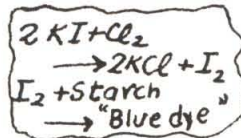 2 KI+Cl₂
→2KCl+I₂
I₂+Starch
→"Blue dye"